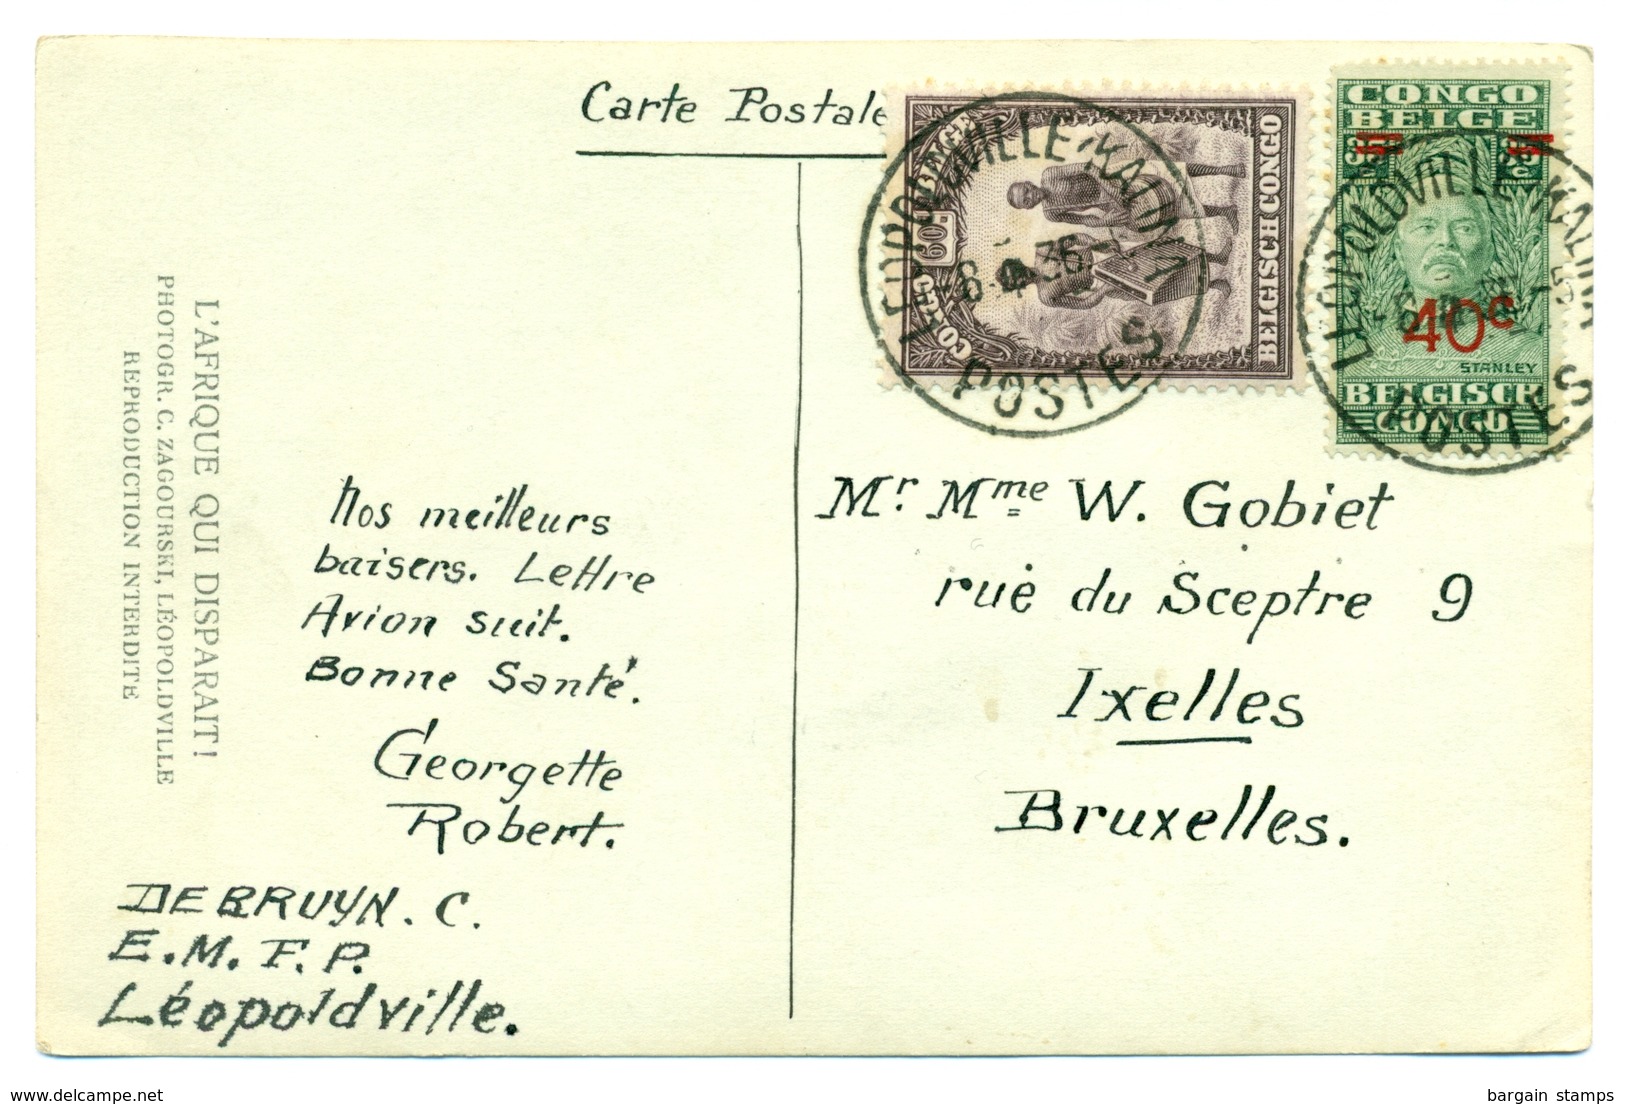 Carte Postale
CONGO BELGE
60c
BELGISCH CONGO
LEOPOLDVILLE-KALINA
6-4-36
POSTES
CONGO
BELGE
35c 35c
40c
STANLEY
BELGISCH
CONGO
LEOPOLDVILLE-KALINA
POSTES
L'AFRIQUE QUI DISPARAIT!
PHOTOGR. C. ZAGOURSKI, LÉOPOLDVILLE
REPRODUCTION INTERDITE
Nos meilleurs
baisers. Lettre
Avion suit.
Bonne Santé.
Georgette
Robert.
DEBRUYN. C.
E.M.F.P.
Léopoldville.
Mr Mme W. Gobiet
rue du Sceptre 9
Ixelles
Bruxelles.
delcampe.net
bargain stamps